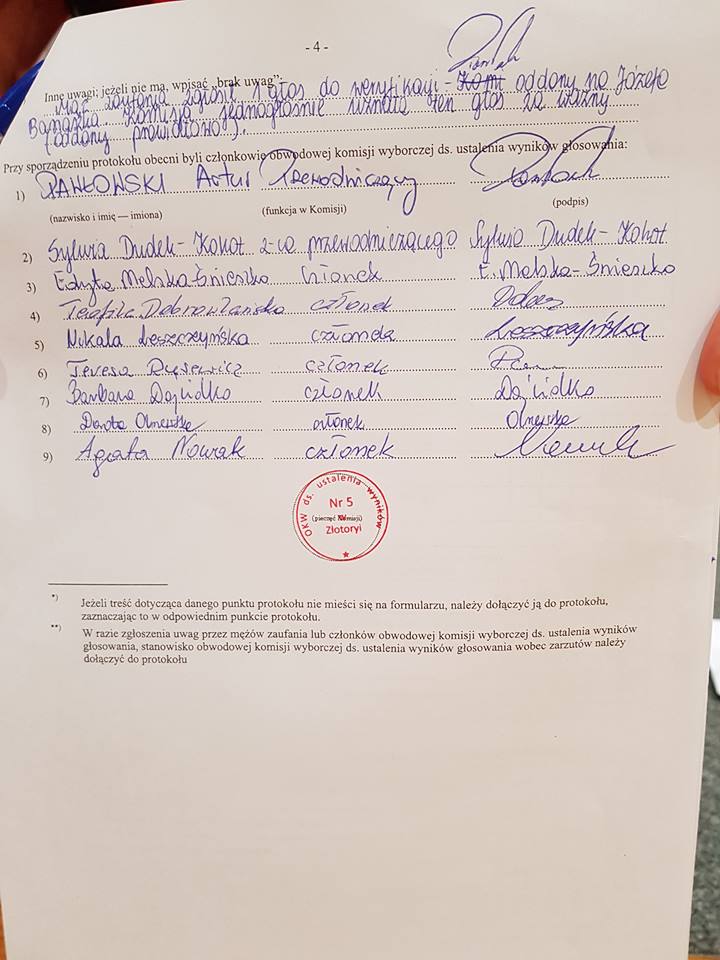 - 4 -
Inne uwagi; jeżeli nie ma, wpisać „brak uwag":
Mąż zaufania zgłosił 1 głos do weryfikacji - oddany na Józefa
Banaszka. Komisja jednogłośnie uznała ten głos za ważny
(oddany prawidłowo).
Przy sporządzeniu protokołu obecni byli członkowie obwodowej komisji wyborczej ds. ustalenia wyników głosowania:
1) PAWŁOWSKI Artur Przewodniczący
(nazwisko i imię — imiona) (funkcja w Komisji) (podpis)
2) Sylwia Dudek-Kokot z-ca przewodniczącego Sylwia Dudek-Kokot
3) Edyta Melska-Śnieszko członek E. Melska-Śnieszko
4) Teofila członek
5) Nikola Leszczyńska członek Leszczyńska
6) Teresa członek
7) Barbara Dajlidko członek Dajlidko
8) Dorota członek
9) Agata Nowak członek Nowak
OKW ds. ustalenia wyników
Nr 5
(pieczęć Komisji)
Złotoryi
*) Jeżeli treść dotycząca danego punktu protokołu nie mieści się na formularzu, należy dołączyć ją do protokołu,
zaznaczając to w odpowiednim punkcie protokołu.
**) W razie zgłoszenia uwag przez mężów zaufania lub członków obwodowej komisji wyborczej ds. ustalenia wyników
głosowania, stanowisko obwodowej komisji wyborczej ds. ustalenia wyników głosowania wobec zarzutów należy
dołączyć do protokołu